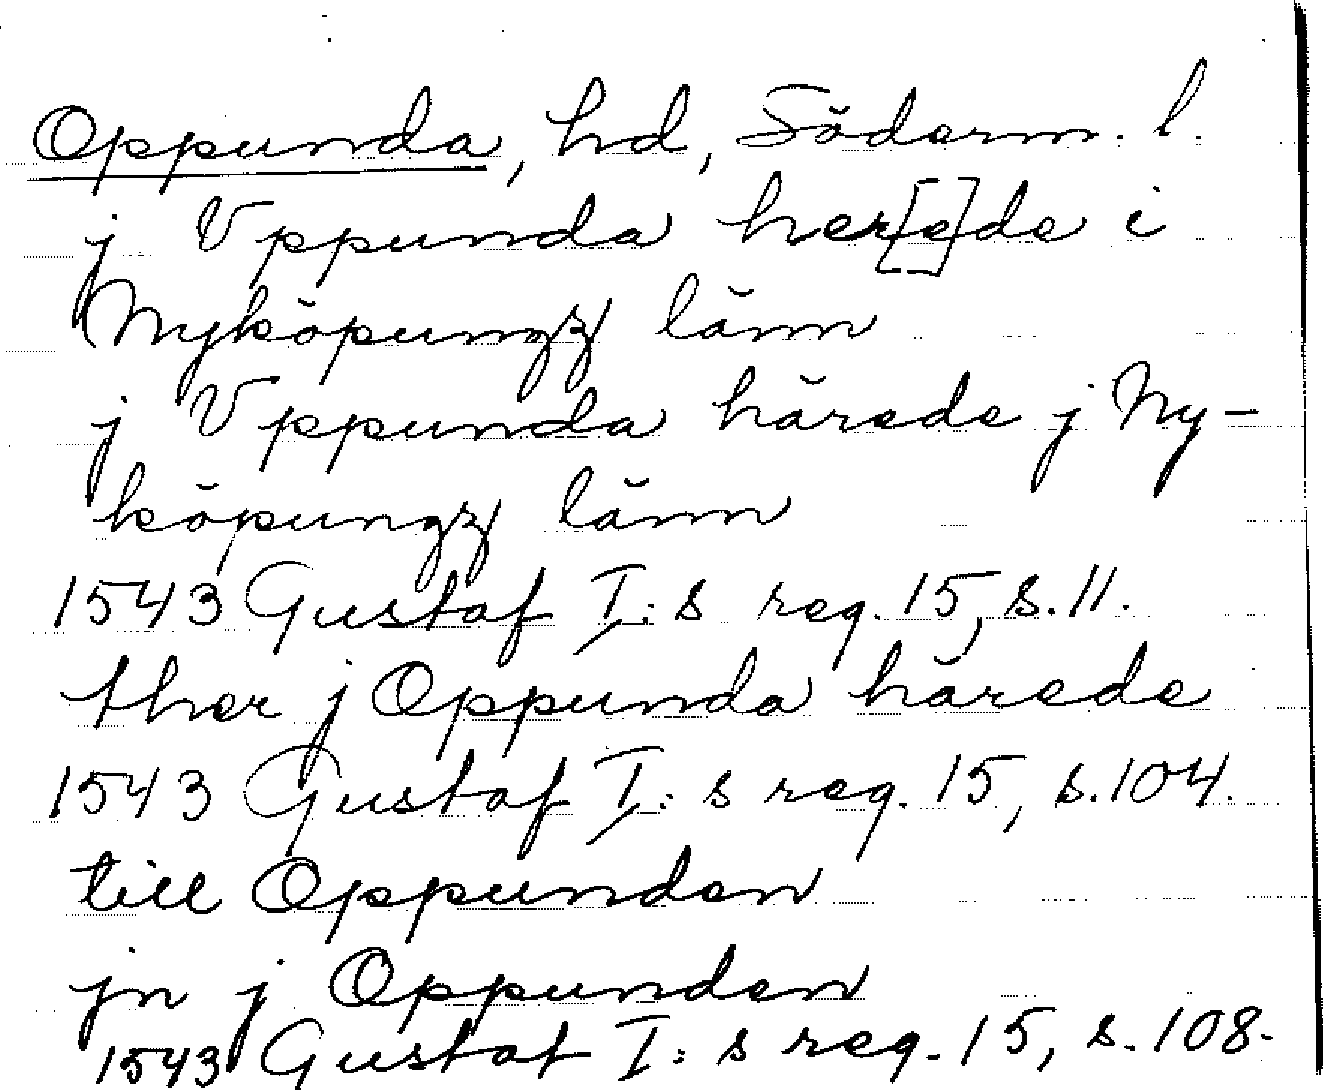 Oppunda, hd, Söderm. l.
j Vppunda her[e]de i
Nyköpungz länn
j Vppunda härede j Ny-
köpungz länn
1543 Gustaf I:s reg. 15, s. 11.
ther j Oppunda härede
1543 Gustaf I:s reg. 15, s. 104.
till Oppunden
jn j Oppunden
1543 Gustaf I:s reg. 15, s. 108.